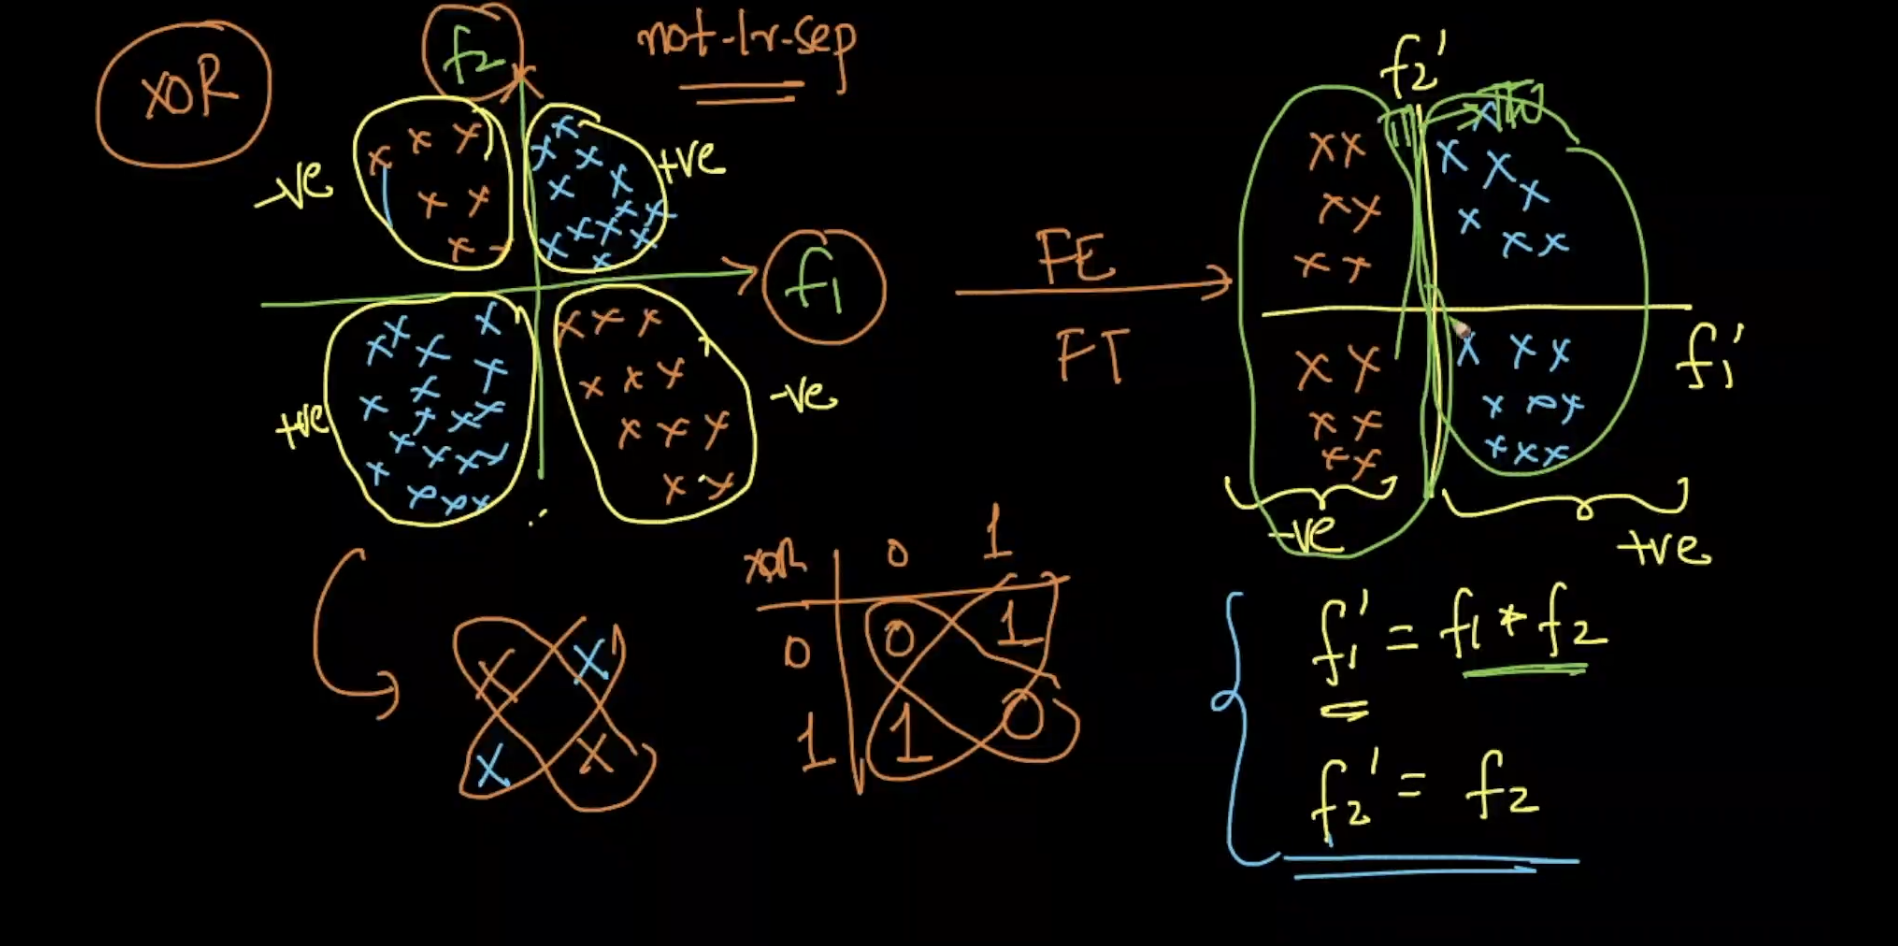 XOR
f2
not-lr-sep
-ve
+ve
f1
+ve
-ve
FE
FT
f2'
f1'
-ve
+ve
XOR 0 1
0 0 1
1 1 0
f1' = f1 * f2
f2' = f2